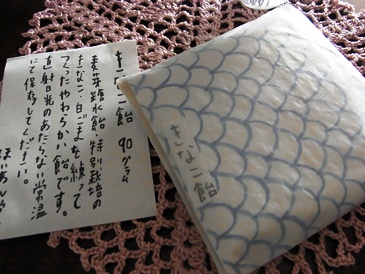 きなこ飴 90グラム
麦芽糖水飴・特別栽培の
きなこ、白ごまを練って
つくったやわらかい飴です。
直射日光のあたらない常温
にて保存してください。
きなこ飴